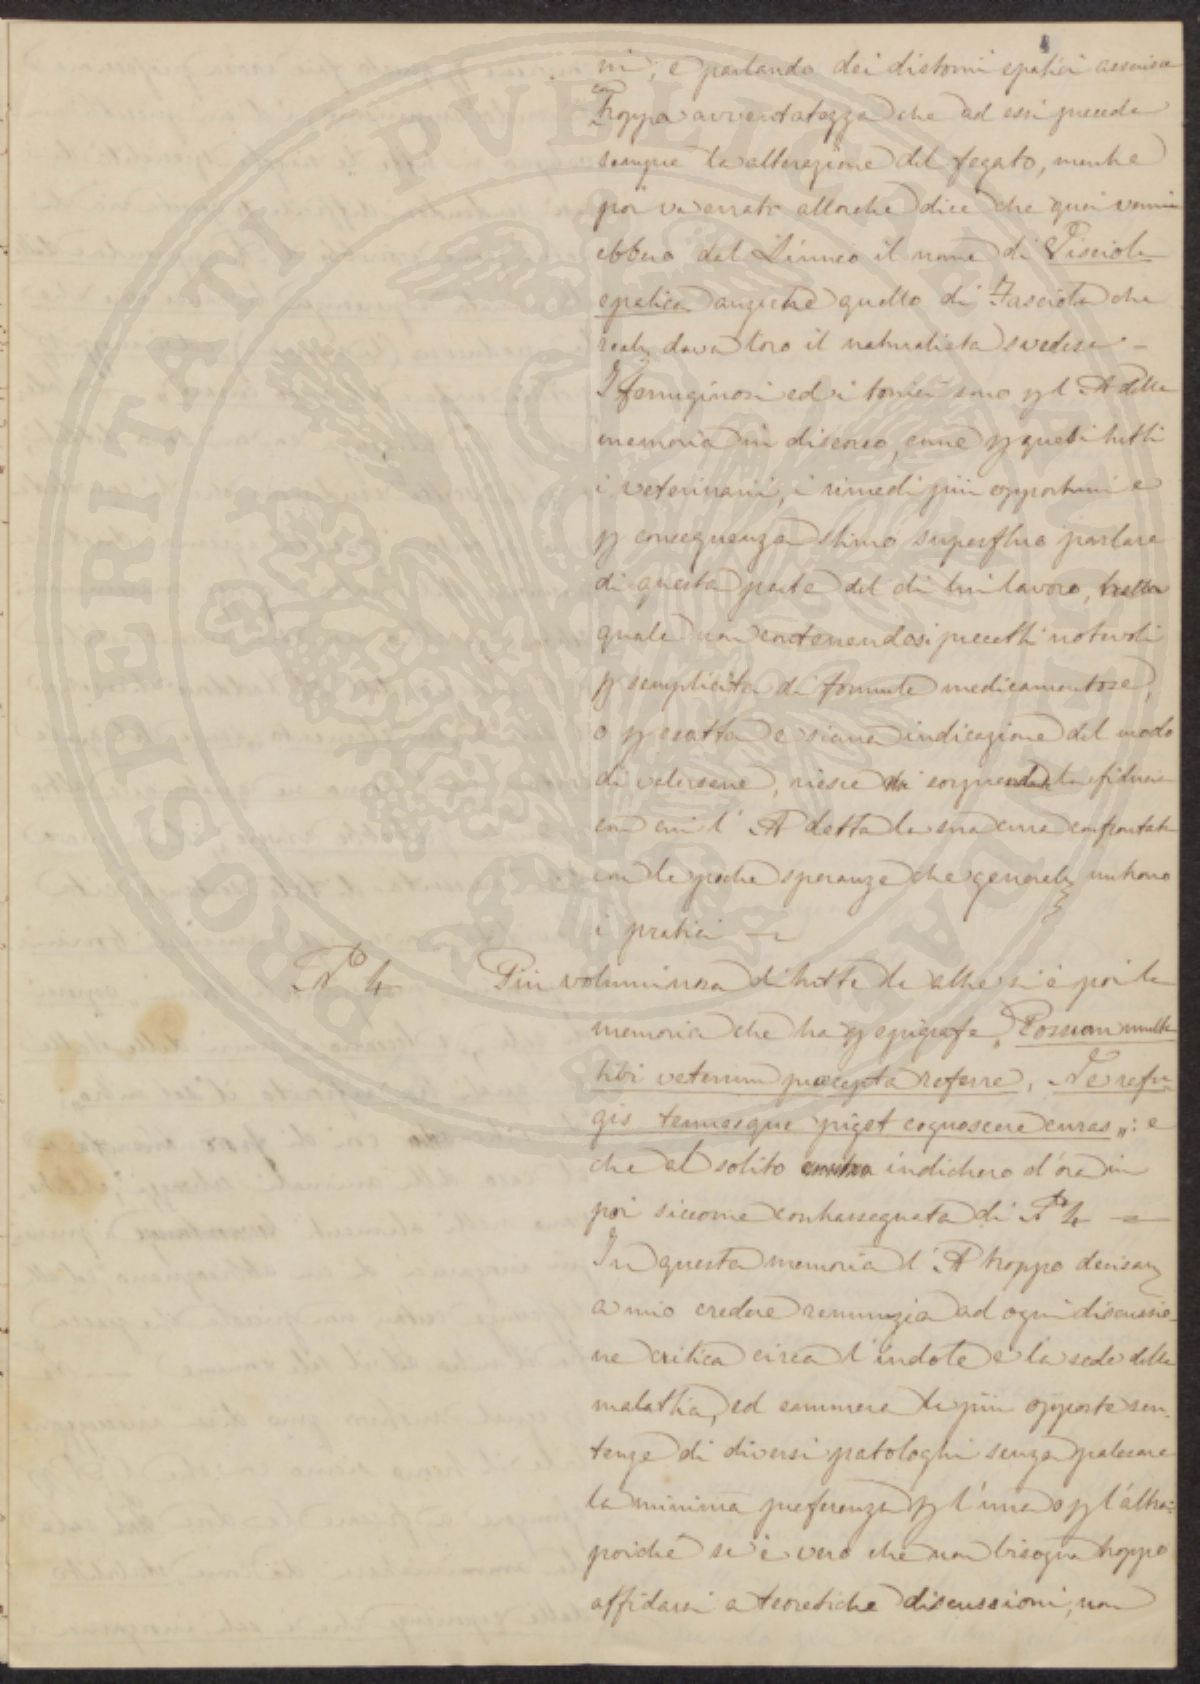 ni, e parlando dei distomi epatici asserisce
con troppa avventatezza che ad essi precede
sempre la alterazione del fegato, mentre
poi va errato allorchè dice che quei vermi
ebbero dal Linneo il nome di Fisciola
epatica anzichè quello di Fasciola che
realm dava loro il naturalista svedese —
I ferruginosi ed i tonici sono pl A della
memoria in discorso, come p quasi tutti
i veterinarii, i rimedi più opportuni e
p conseguenza stimo superfluo parlare
di questa parte del di lui lavoro, nella
quale non contenendosi precetti notevoli
p semplicità di formule medicamentose,
o p esatta e sicura indicazione del modo
di valersene, riesce di sorprendente fiducia
con cui l' A detta la sua cura confrontata
con le poche speranze che generalm nutrono
i pratici —
N° 4 Più voluminosa di tutte le altre si è poi la
memoria che ha p epigrafe „Possum multa
tibi veterum præcepta referre, Ni refu-
gis tenuesque piget cognoscere curas„: e
che al solito indicherò d'ora in
poi siccome contrassegnata di N° 4 —
In questa memoria l' A troppo decisam
a mio credere renunzia ad ogni discussio-
ne critica circa l'indole e la sede della
malattia, ed enumera le più opposte sen-
tenze di diversi patologhi senza palesare
la minima preferenza p l'una o p l'altra;
poichè se è vero che non bisogna troppo
affidarsi a teoretiche discussioni, non